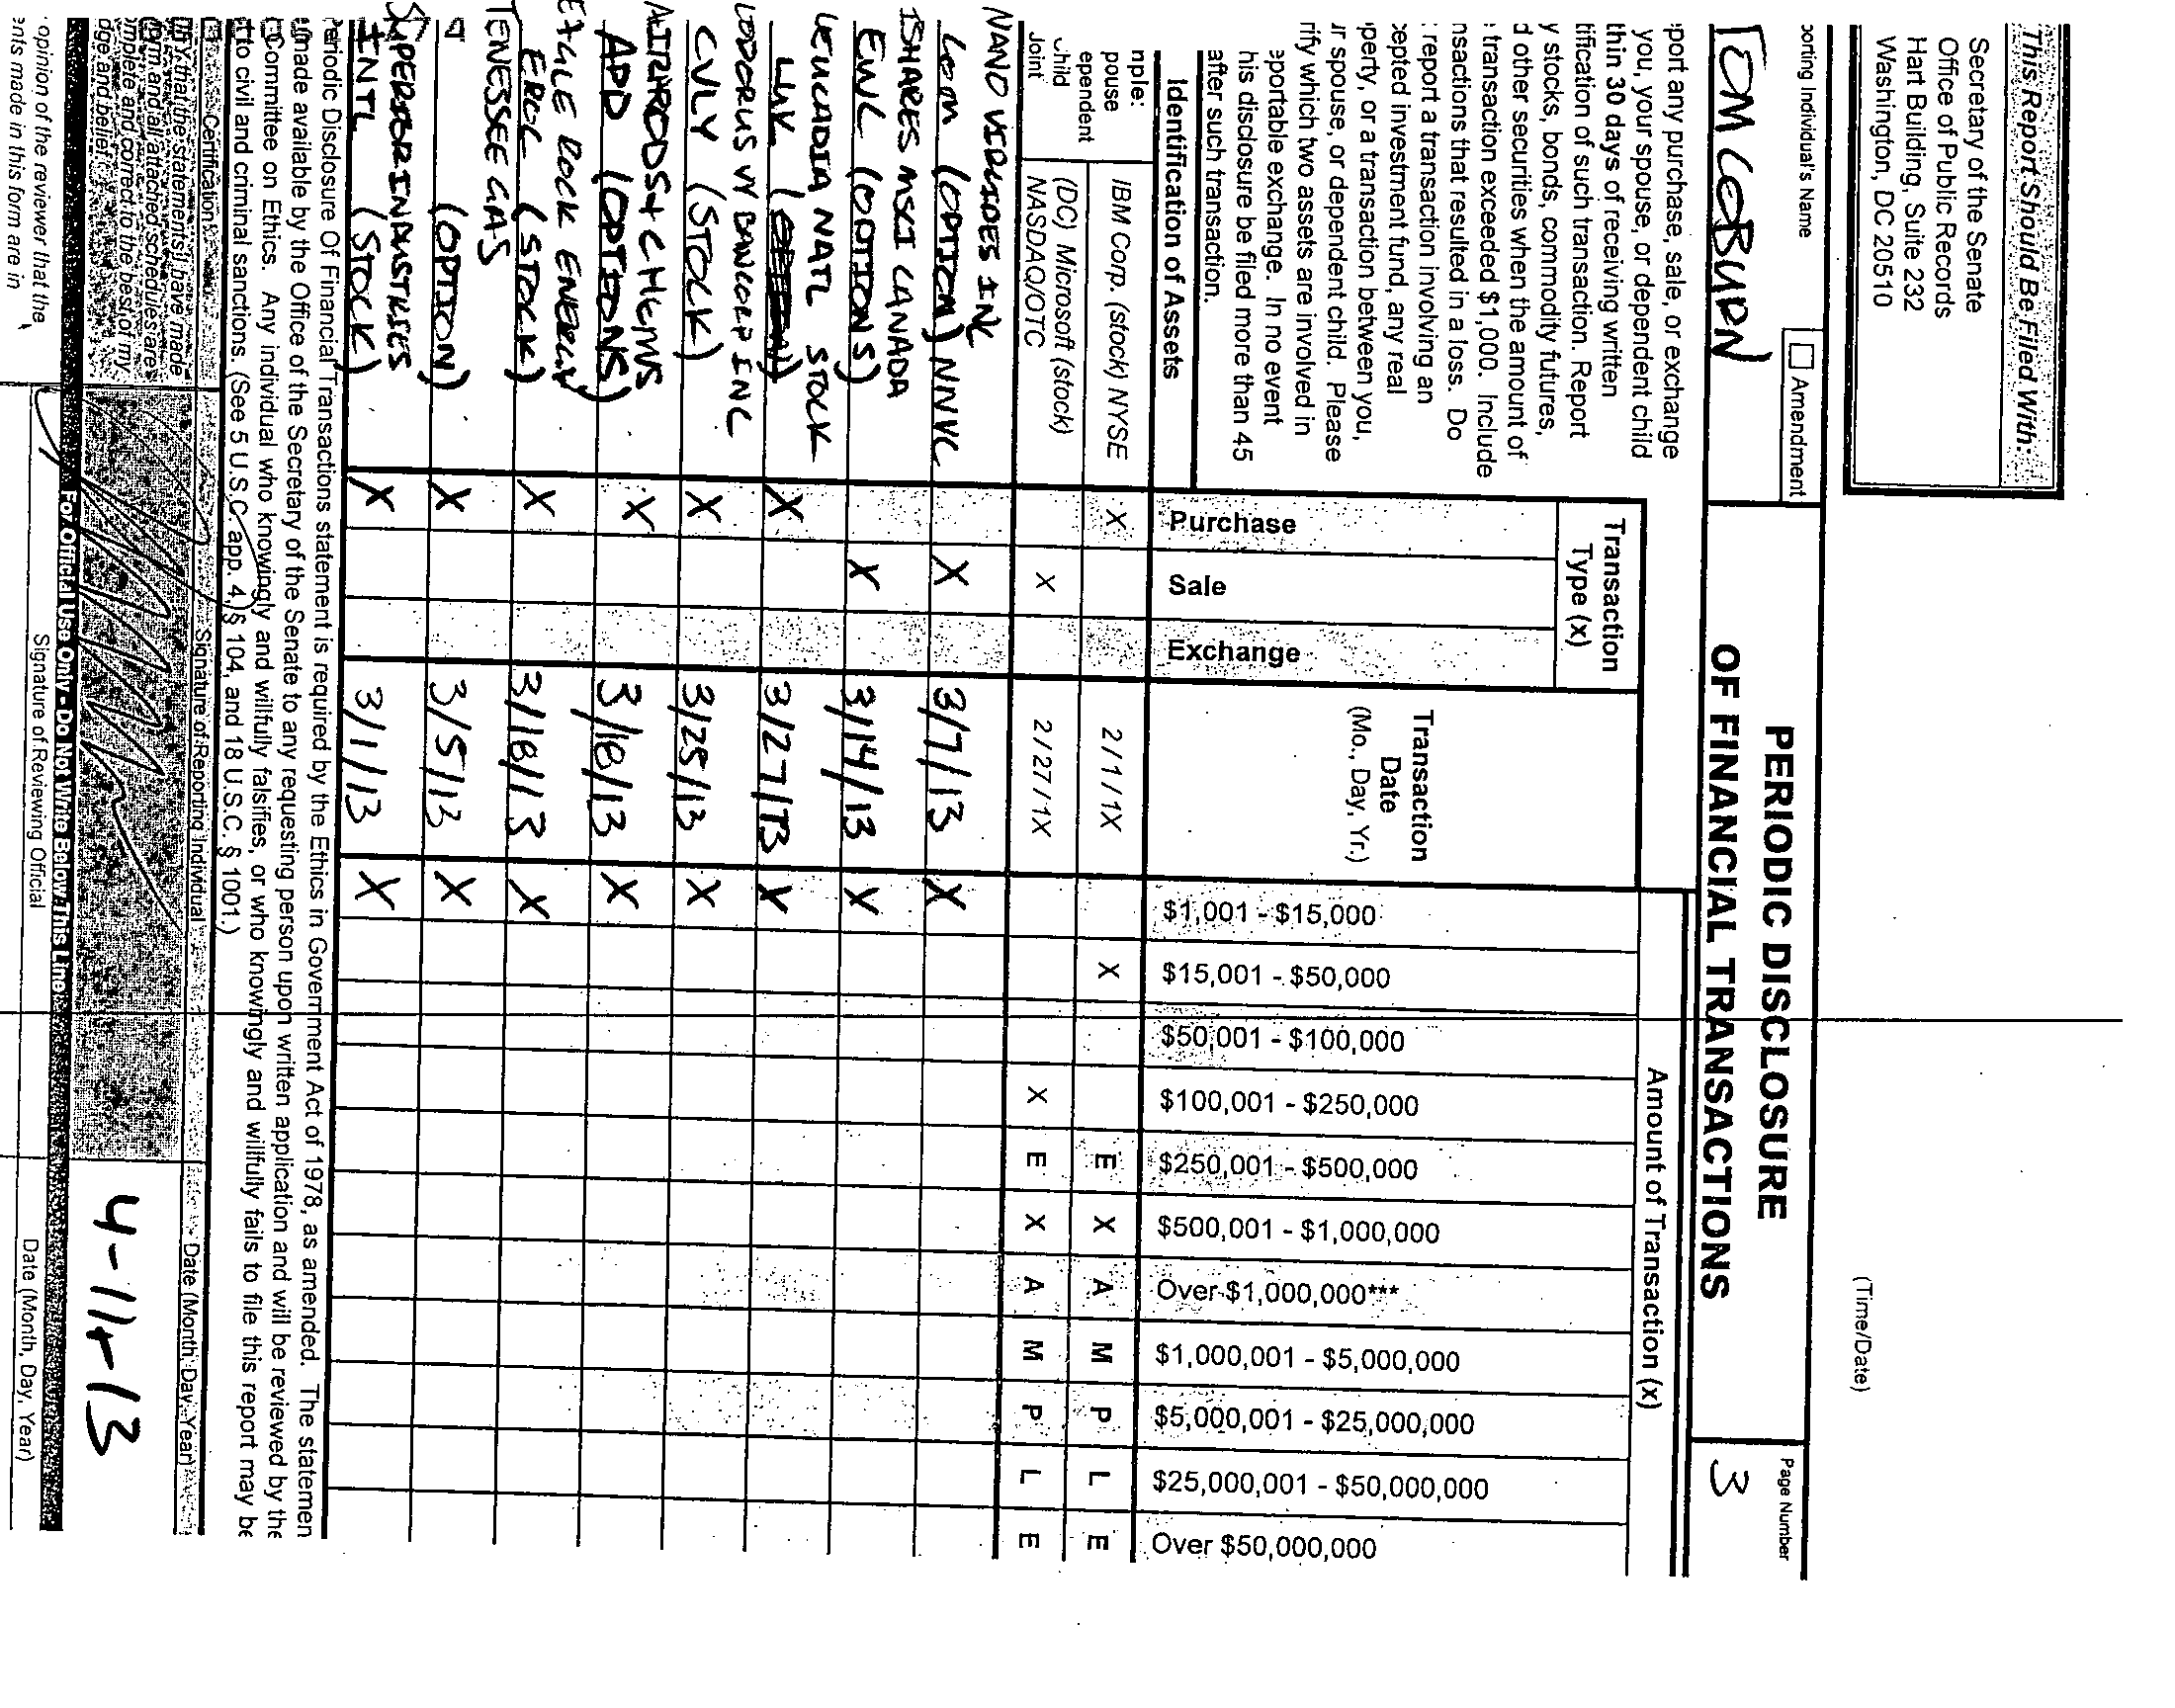 This Report Should Be Filed With:
Secretary of the Senate
Office of Public Records
Hart Building, Suite 232
Washington, DC 20510
(Time/Date)
orting Individual's Name
Amendment
TOM COBURN
PERIODIC DISCLOSURE
OF FINANCIAL TRANSACTIONS
Page Number
3
port any purchase, sale, or exchange
you, your spouse, or dependent child
thin 30 days of receiving written
tification of such transaction. Report
y stocks, bonds, commodity futures,
d other securities when the amount of
transaction exceeded $1,000. Include
nsactions that resulted in a loss. Do
report a transaction involving an
cepted investment fund, any real
perty, or a transaction between you,
ur spouse, or dependent child. Please
rify which two assets are involved in
eportable exchange. In no event
his disclosure be filed more than 45
after such transaction.
Identification of Assets
Transaction
Type (x)
Purchase
Sale
Exchange
Transaction
Date
(Mo., Day, Yr.)
Amount of Transaction (x)
$1,001 - $15,000
$15,001 - $50,000
$50,001 - $100,000
$100,001 - $250,000
$250,001 - $500,000
$500,001 - $1,000,000
Over $1,000,000***
$1,000,001 - $5,000,000
$5,000,001 - $25,000,000
$25,000,001 - $50,000,000
Over $50,000,000
nple:
pouse
ependent
Child
Joint
IBM Corp. (stock) NYSE X 2/1/1X X E X A M P L E
(DC) Microsoft (stock)
NASDAQ/OTC X 2/27/1X X E X A M P L E
NANO VIRCIDES INC
(OPTION) NNVC X 3/7/13 X
ISHARES MSCI CANADA
EWC (OPTIONS) X 3/14/13 X
LEUCADIA NATL STOCK
LUK X 3/27/13 X
CODORUS VY BANCORP INC
CVLY (STOCK) X 3/25/13 X
AIRPRODS+CHEMS
APD (OPTIONS) X 3/18/13 X
EAGLE ROCK ENERGY
EROC (STOCK) X 3/18/13 X
TENESSEE GAS
(OPTION) X 3/5/13 X
SUPERIOR INDUSTRIES
INTL (STOCK) X 3/1/13 X
eriodic Disclosure Of Financial Transactions statement is required by the Ethics in Government Act of 1978, as amended. The statemen
made available by the Office of the Secretary of the Senate to any requesting person upon written application and will be reviewed by the
Committee on Ethics. Any individual who knowingly and willfully falsifies, or who knowingly and willfully fails to file this report may be
to civil and criminal sanctions. (See 5 U.S.C. app. 4, § 104, and 18 U.S.C. § 1001.)
Certification
Signature of Reporting Individual
Date (Month, Day, Year)
that the statements I have made
and all attached schedules are
mplete and correct to the best of my
dge and belief.
4-11-13
For Official Use Only - Do Not Write Below This Line
opinion of the reviewer that the
ents made in this form are in
Signature of Reviewing Official
Date (Month, Day, Year)